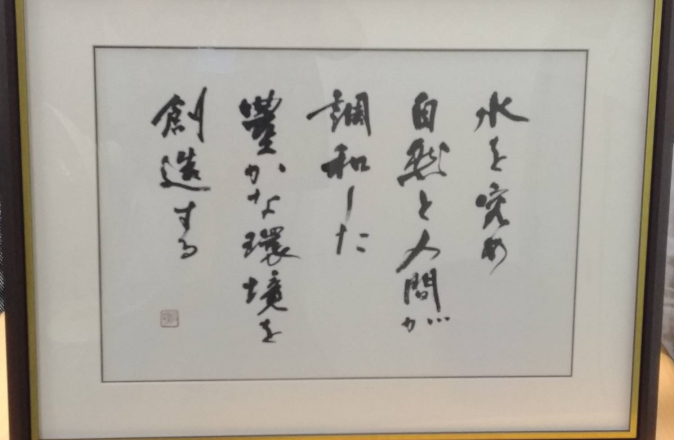 水を究め
自然と人間が
調和した
豐かな環境を
創造する